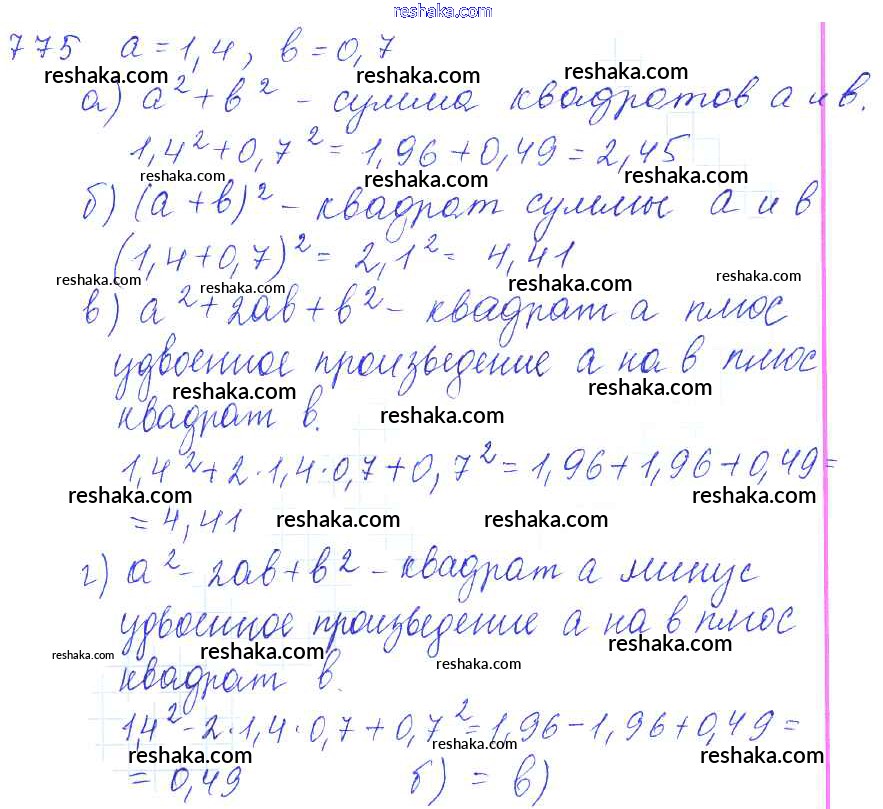 reshaka.com
775 a = 1,4, в = 0,7
reshaka.com reshaka.com reshaka.com
а) a² + в² - сумма квадратов a и в.
1,4² + 0,7² = 1,96 + 0,49 = 2,45
reshaka.com reshaka.com reshaka.com
б) (a + в)² - квадрат суммы a и в
(1,4 + 0,7)² = 2,1² = 4,41
reshaka.com reshaka.com reshaka.com reshaka.com
в) a² + 2aв + в² - квадрат a плюс
удвоенное произведение a на в плюс
reshaka.com reshaka.com
квадрат в.
reshaka.com
1,4² + 2·1,4·0,7 + 0,7² = 1,96 + 1,96 + 0,49 =
reshaka.com reshaka.com reshaka.com
= 4,41
reshaka.com reshaka.com
г) a² - 2aв + в² - квадрат a минус
reshaka.com reshaka.com reshaka.com
удвоенное произведение a на в плюс
reshaka.com reshaka.com reshaka.com
квадрат в.
1,4² - 2·1,4·0,7 + 0,7² = 1,96 - 1,96 + 0,49 =
reshaka.com reshaka.com reshaka.com
= 0,49 б) = в)